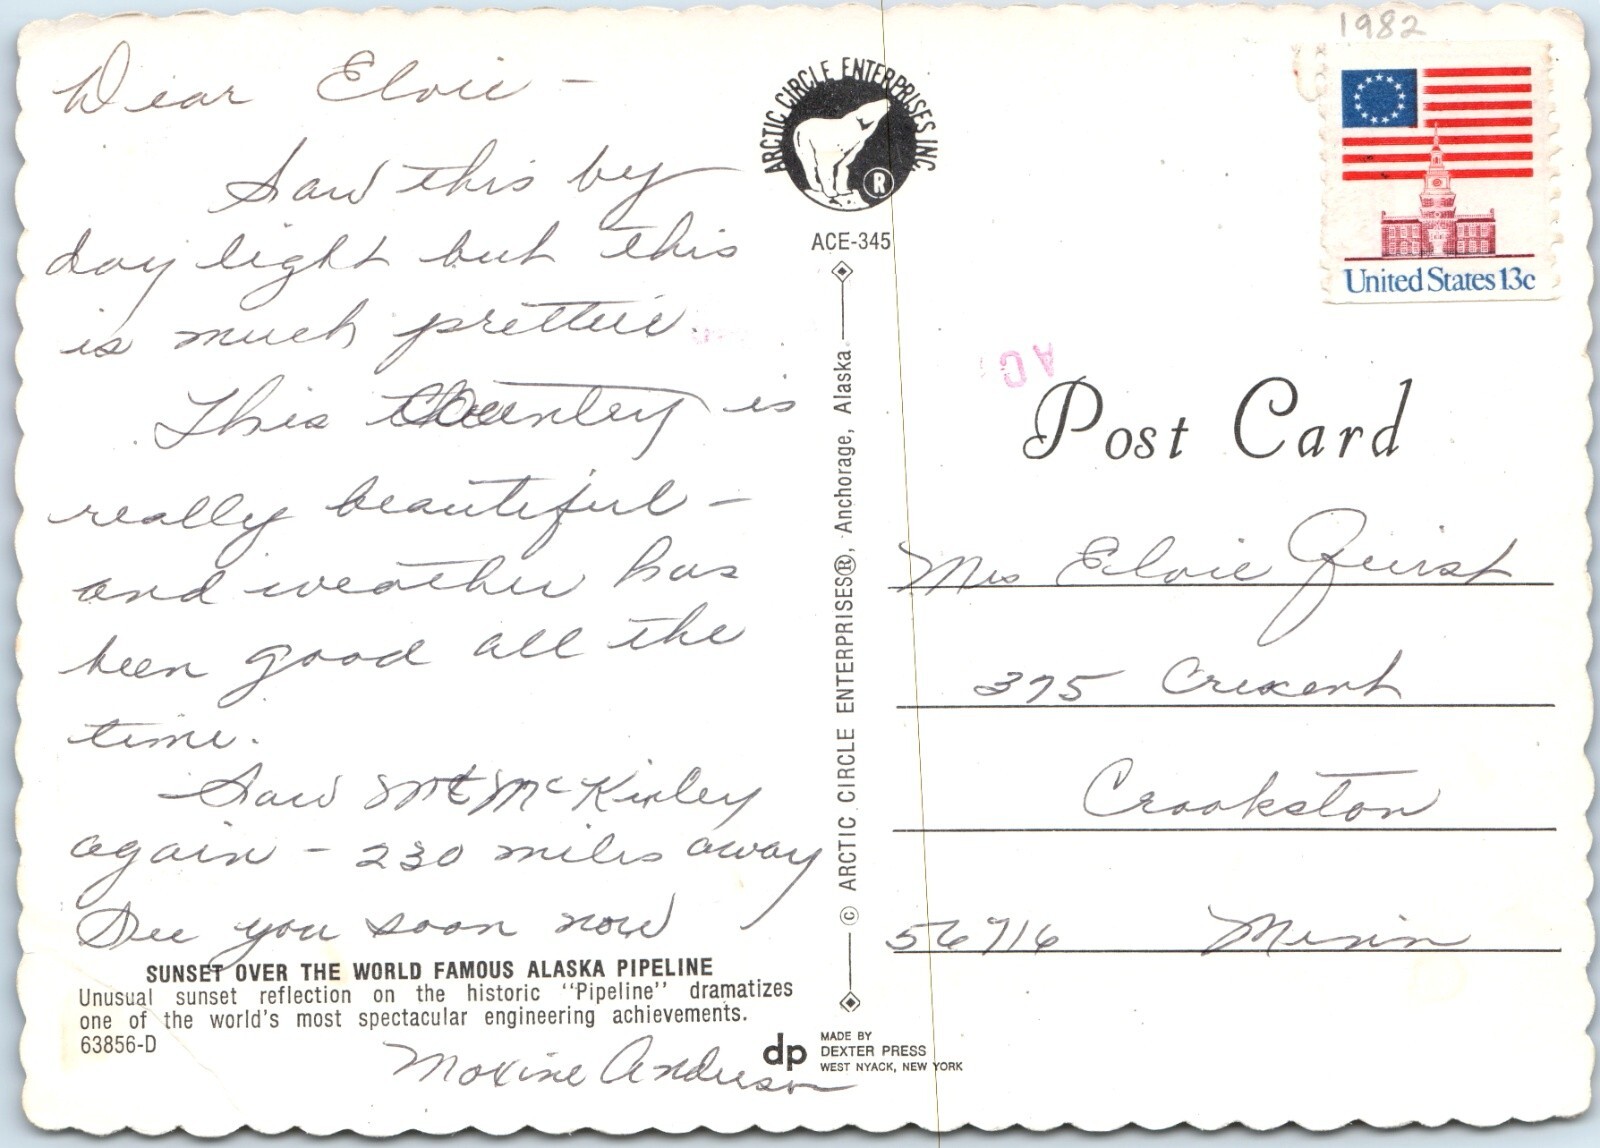 Dear Elvie -
Saw this by
day light but this
is much prettier.
This country is
really beautiful -
and weather has
been good all the
time.
Saw Mt McKinley
again - 230 miles away
See you soon now
SUNSET OVER THE WORLD FAMOUS ALASKA PIPELINE
Unusual sunset reflection on the historic "Pipeline" dramatizes
one of the world's most spectacular engineering achievements.
63856-D
Maxine Anderson
ARCTIC CIRCLE ENTERPRISES INC.
®
ACE-345
© ARCTIC CIRCLE ENTERPRISES®, Anchorage, Alaska
dp
MADE BY
DEXTER PRESS
WEST NYACK, NEW YORK
1982
United States 13c
Post Card
Mrs Elvie Quist
375 Crexent
Crookston
56716 Minn